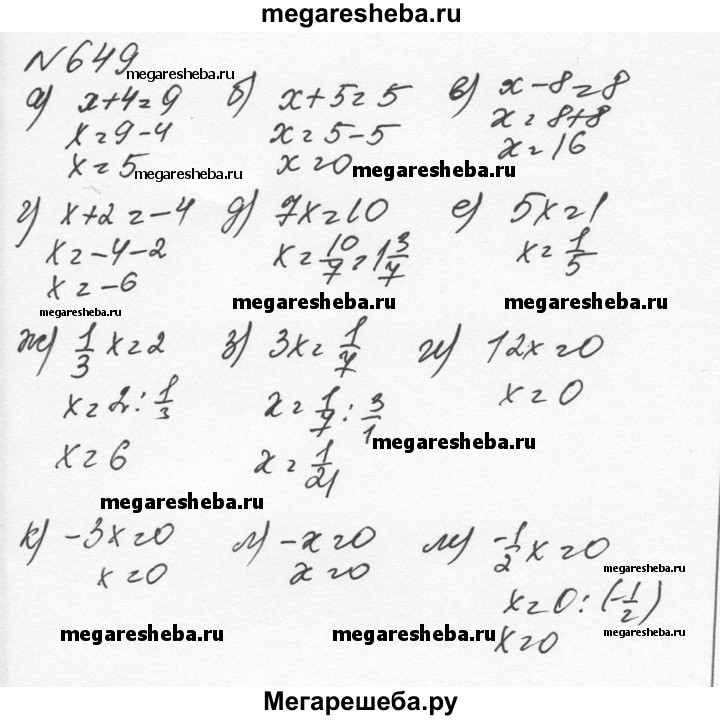 megaresheba.ru
№649
megaresheba.ru
а) x+4=9 б) x+5=5 в) x-8=8
x=9-4 x=5-5 x=8+8
x=5 x=0 x=16
megaresheba.ru megaresheba.ru
г) x+2=-4 д) 7x=10 е) 5x=1
x=-4-2 x=10/7=1 3/7 x=1/5
x=-6
megaresheba.ru megaresheba.ru megaresheba.ru
ж) 1/3 x=2 з) 3x=1/7 и) 12x=0
x=2:1/3 x=1/7:3/1 x=0
x=6 x=1/21
megaresheba.ru
megaresheba.ru
к) -3x=0 л) -x=0 м) -1/2 x=0
x=0 x=0 x=0:(-1/2)
megaresheba.ru
x=0
megaresheba.ru megaresheba.ru megaresheba.ru
Мегарешеба.ру